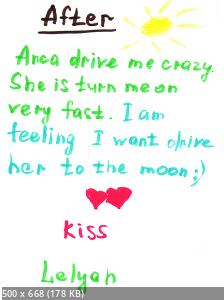 After
Anca drive me crazy.
She is turn me on
very fast. I am
feeling I want drive
her to the moon ;)
Kiss
Lelyah
500 x 668 (178 KB)